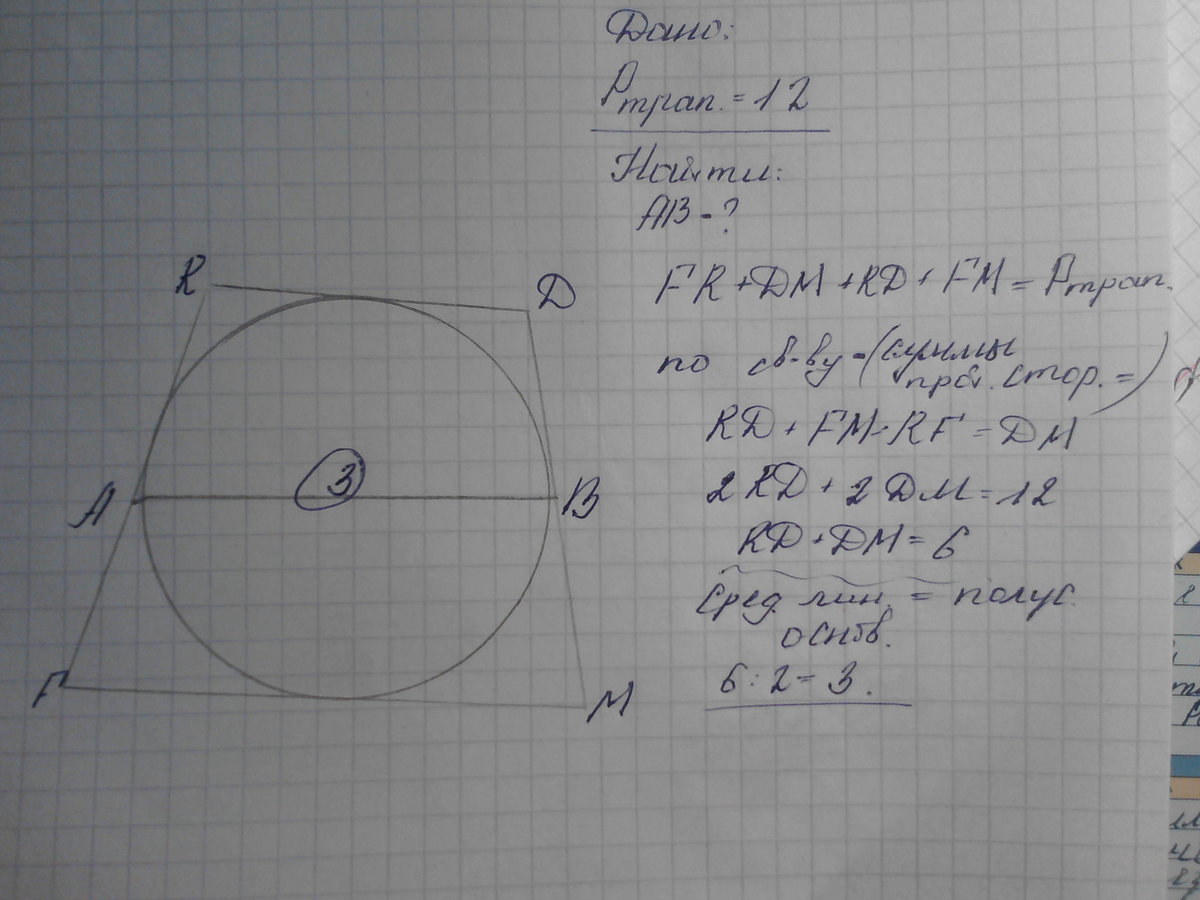 Дано:
Pтрап. = 12
Найти:
AB - ?
R
D
FR + DM + RD + FM = Pтрап.
по св-ву - (суммы
прот. стор. =)
RD + FM = RF = DM
A
3
B
2RD + 2DM = 12
RD + DM = 6
сред. лин. = полус.
основ.
F
M
6 : 2 = 3.